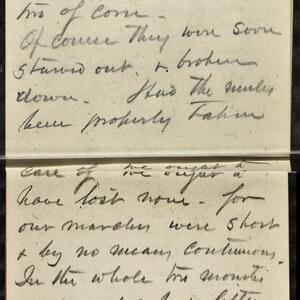 two of corn.
Of course they were soon
starved out. & broken
down. Had the mules
been properly taken
care of we ought to
have lost none - for
our marches were short
& by no means continuous.
In the whole two months